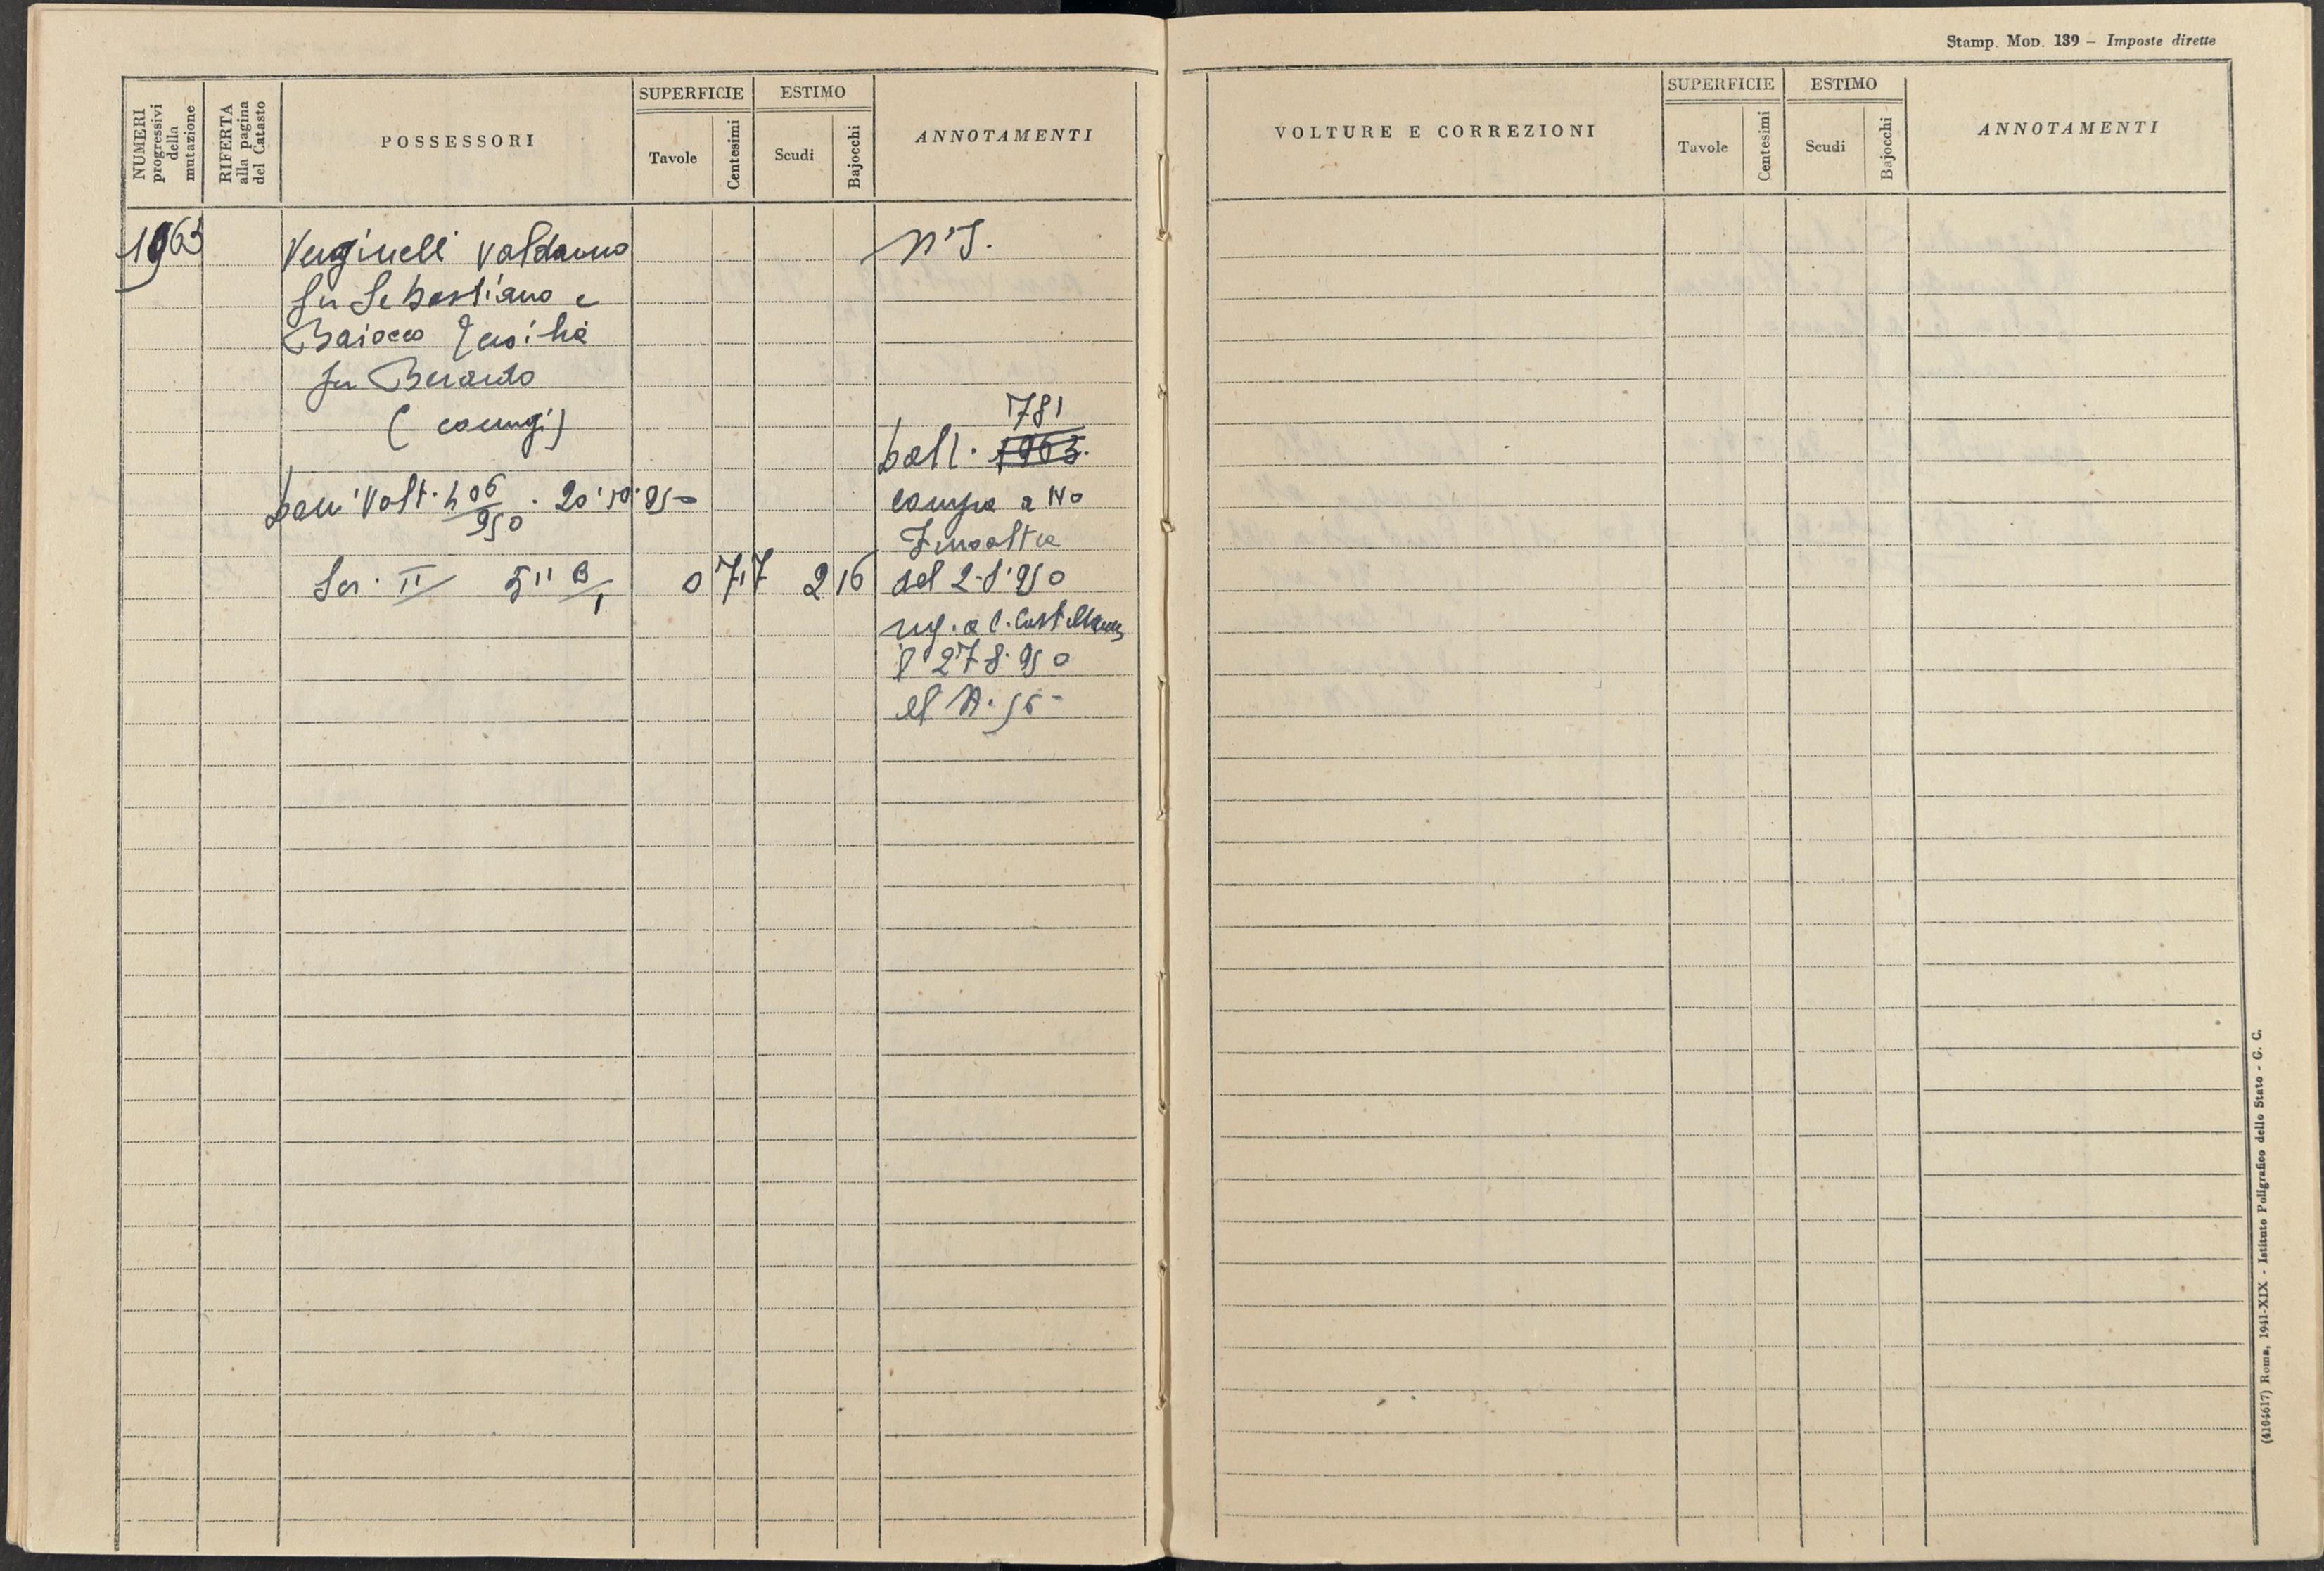 Stamp. Mod. 139 – Imposte dirette
NUMERI progressivi della mutazione
RIFERTA alla pagina del Catasto
POSSESSORI
SUPERFICIE
Tavole
Centesimi
ESTIMO
Scudi
Bajocchi
ANNOTAMENTI
VOLTURE E CORREZIONI
SUPERFICIE
Tavole
Centesimi
ESTIMO
Scudi
Bajocchi
ANNOTAMENTI
1963
Verginelli
fu Sebastiano e
Baiocco Ersilia
fu Berardo
(coniugi)
Volt. 20.10.950
Ser. II 511 B/1 0 77 2 16
781
boll. 1963.
compra a No
del 2.8.950
reg. a C. Castellana
il 27.8.950
al N. 56
(4104617) Roma, 1941-XIX - Istituto Poligrafico dello Stato - G. C.